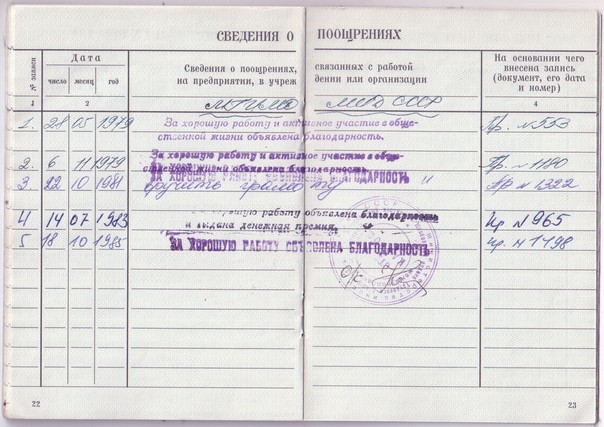 СВЕДЕНИЯ О ПООЩРЕНИЯХ
№ записи
Дата
число месяц год
Сведения о поощрениях, связанных с работой
на предприятии, в учреждении или организации
На основании чего
внесена запись
(документ, его дата
и номер)
1 2 4
МИД СССР
1. 28 05 1979 За хорошую работу и активное участие в обще- Пр. №553
ственной жизни объявлена благодарность.
2. 6 11 1979 За хорошую работу и активное участие в обще- Пр. №1180
ственной жизни объявлена благодарность
ЗА ХОРОШУЮ РАБОТУ ОБЪЯВЛЕНА БЛАГОДАРНОСТЬ
3. 22 10 1981 вручить грамоту " Пр №1322
4 14 07 1983 За хорошую работу объявлена благодарность пр №965
и выдана денежная премия.
5 18 10 1985 ЗА ХОРОШУЮ РАБОТУ ОБЪЯВЛЕНА БЛАГОДАРНОСТЬ пр. №1498
22
23